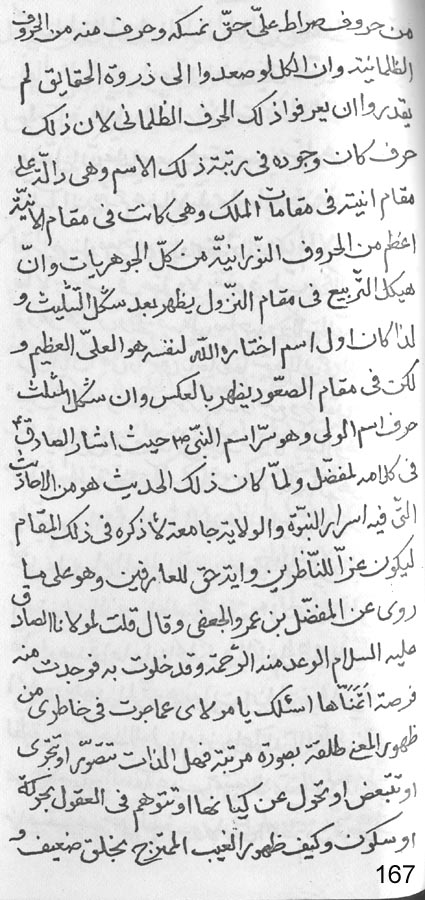 من حروف صراط علىّ حقّ نمسكه وحرف منه من الحروف
الظلمانيته وان الكل لو صعدوا الى ذروة الحقايق لم
يقدروا ان يعرفوا ذلك الحرف الظلمانى لان ذلك
حرف كان وجوده فى رتبة ذلك الاسم وهى دالّة على
مقام انيته فى مقامات الملك وهى كانت فى مقام الانيّته
اعظم من الحروف النّورانيّة من كلّ الجوهريات وانّ
هيكل التّربيع فى مقام النّزول يظهر بعد شكل التّثليث و
لذا كان اول اسم اختاره اللّه لنفسه هو العلىّ العظيم و
لكن فى مقام الصّعود يظهر بالعكس وان شكل المثلّث
حرف اسم الولى وهو سرّ اسم النّبى ص حيث اشار الصادق ع
فى كلامه لمفضّل ولمّا كان ذلك الحديث هو من الاحاديث
التّى فيه اسرار النّبوّة والولاية جامعة لاذكره فى ذلك المقام
ليكون عزّاً للنّاظرين وايته حق للعارفين وهو على ما
روى عن المفضّل بن عمرو الجعفى وقال قلت لمولانا الصادق
عليه السلام الوعد منه الرّحمة وقد خلوت به فوجدت منه
فرصة اتمنّاها اسئلك يا مولاى عما جرت فى خاطرى من
ظهور المعنى لخلقه بصورة مرتبة فهل الذات تتصوّر او تتجزّى
او تتبعض او تحول عن كيانها او تتوهم فى العقول بحركة
او سكون وكيف ظهور الغيب الممتزج بخلق ضعيف و
167